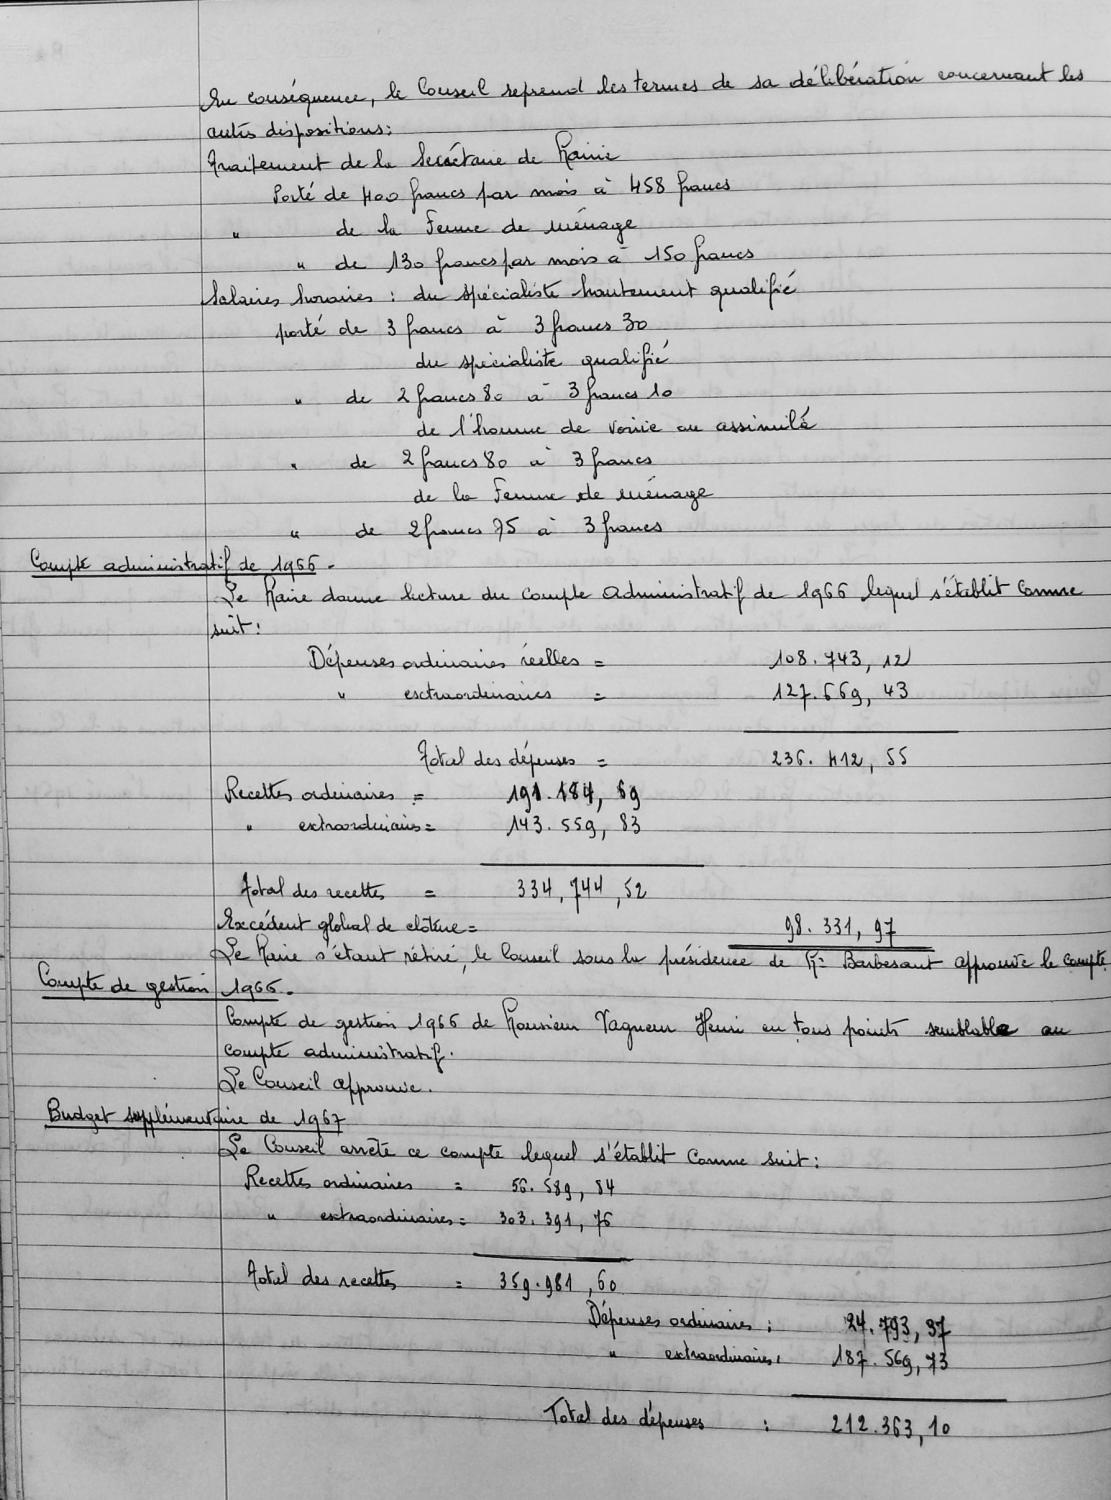 En conséquence, le Conseil reprend les termes de sa délibération concernant les
autres dispositions:
Traitement de la Secrétaire de Mairie
Porté de 400 francs par mois à 458 francs
" de la Femme de ménage
" de 130 francs par mois à 150 francs
Salaires horaires : du spécialiste hautement qualifié
porté de 3 francs à 3 francs 30
du spécialiste qualifié
" de 2 francs 80 à 3 francs 10
de l'homme de voirie ou assimilé
" de 2 francs 80 à 3 francs
de la Femme de ménage
" de 2 francs 75 à 3 francs
Compte administratif de 1966.
Le Maire donne lecture du compte administratif de 1966 lequel s'établit comme
suit:
Dépenses ordinaires réelles = 108.743,12
" esctraordinaires = 127.669,43
Total des dépenses = 236.412,55
Recettes ordinaires = 191.184,69
" extraordinaires = 143.559,83
Total des recettes = 334,744,52
Excédent global de clôture = 98.331,97
Le Maire s'étant rétiré, le Conseil sous la présidence de Mr Barbesant approuve le compte
Compte de gestion 1966.
Compte de gestion 1966 de Monsieur Vagneur Henri en tous points semblable au
compte administratif.
Le Conseil approuve.
Budget supplémentaire de 1967
Le Conseil arrête ce compte lequel s'établit comme suit:
Recettes ordinaires = 56.589,84
" esctraordinaires = 303.391,76
Total des recettes = 359.981,60
Dépenses ordinaires : 24.793,37
" extraordinaires : 187.569,73
Total des dépenses : 212.363,10